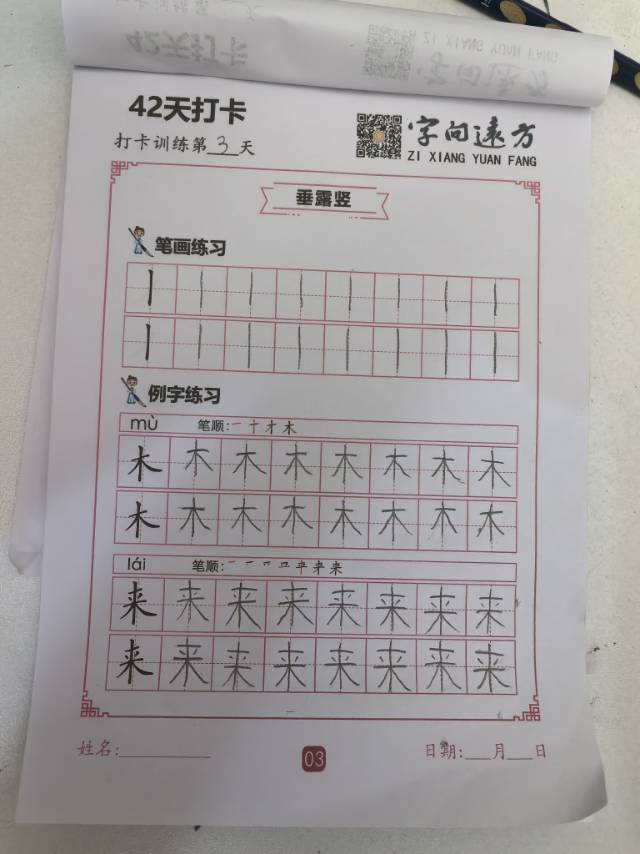 42天打卡
打卡训练第3天
字向远方
ZI XIANG YUAN FANG
垂露竖
笔画练习
例字练习
mù 笔顺:一十才木
木木木木木木木木
木木木木木木木木
lái 笔顺:
来来来来来来来来
来来来来来来来来
姓名:
03
日期:___月___日